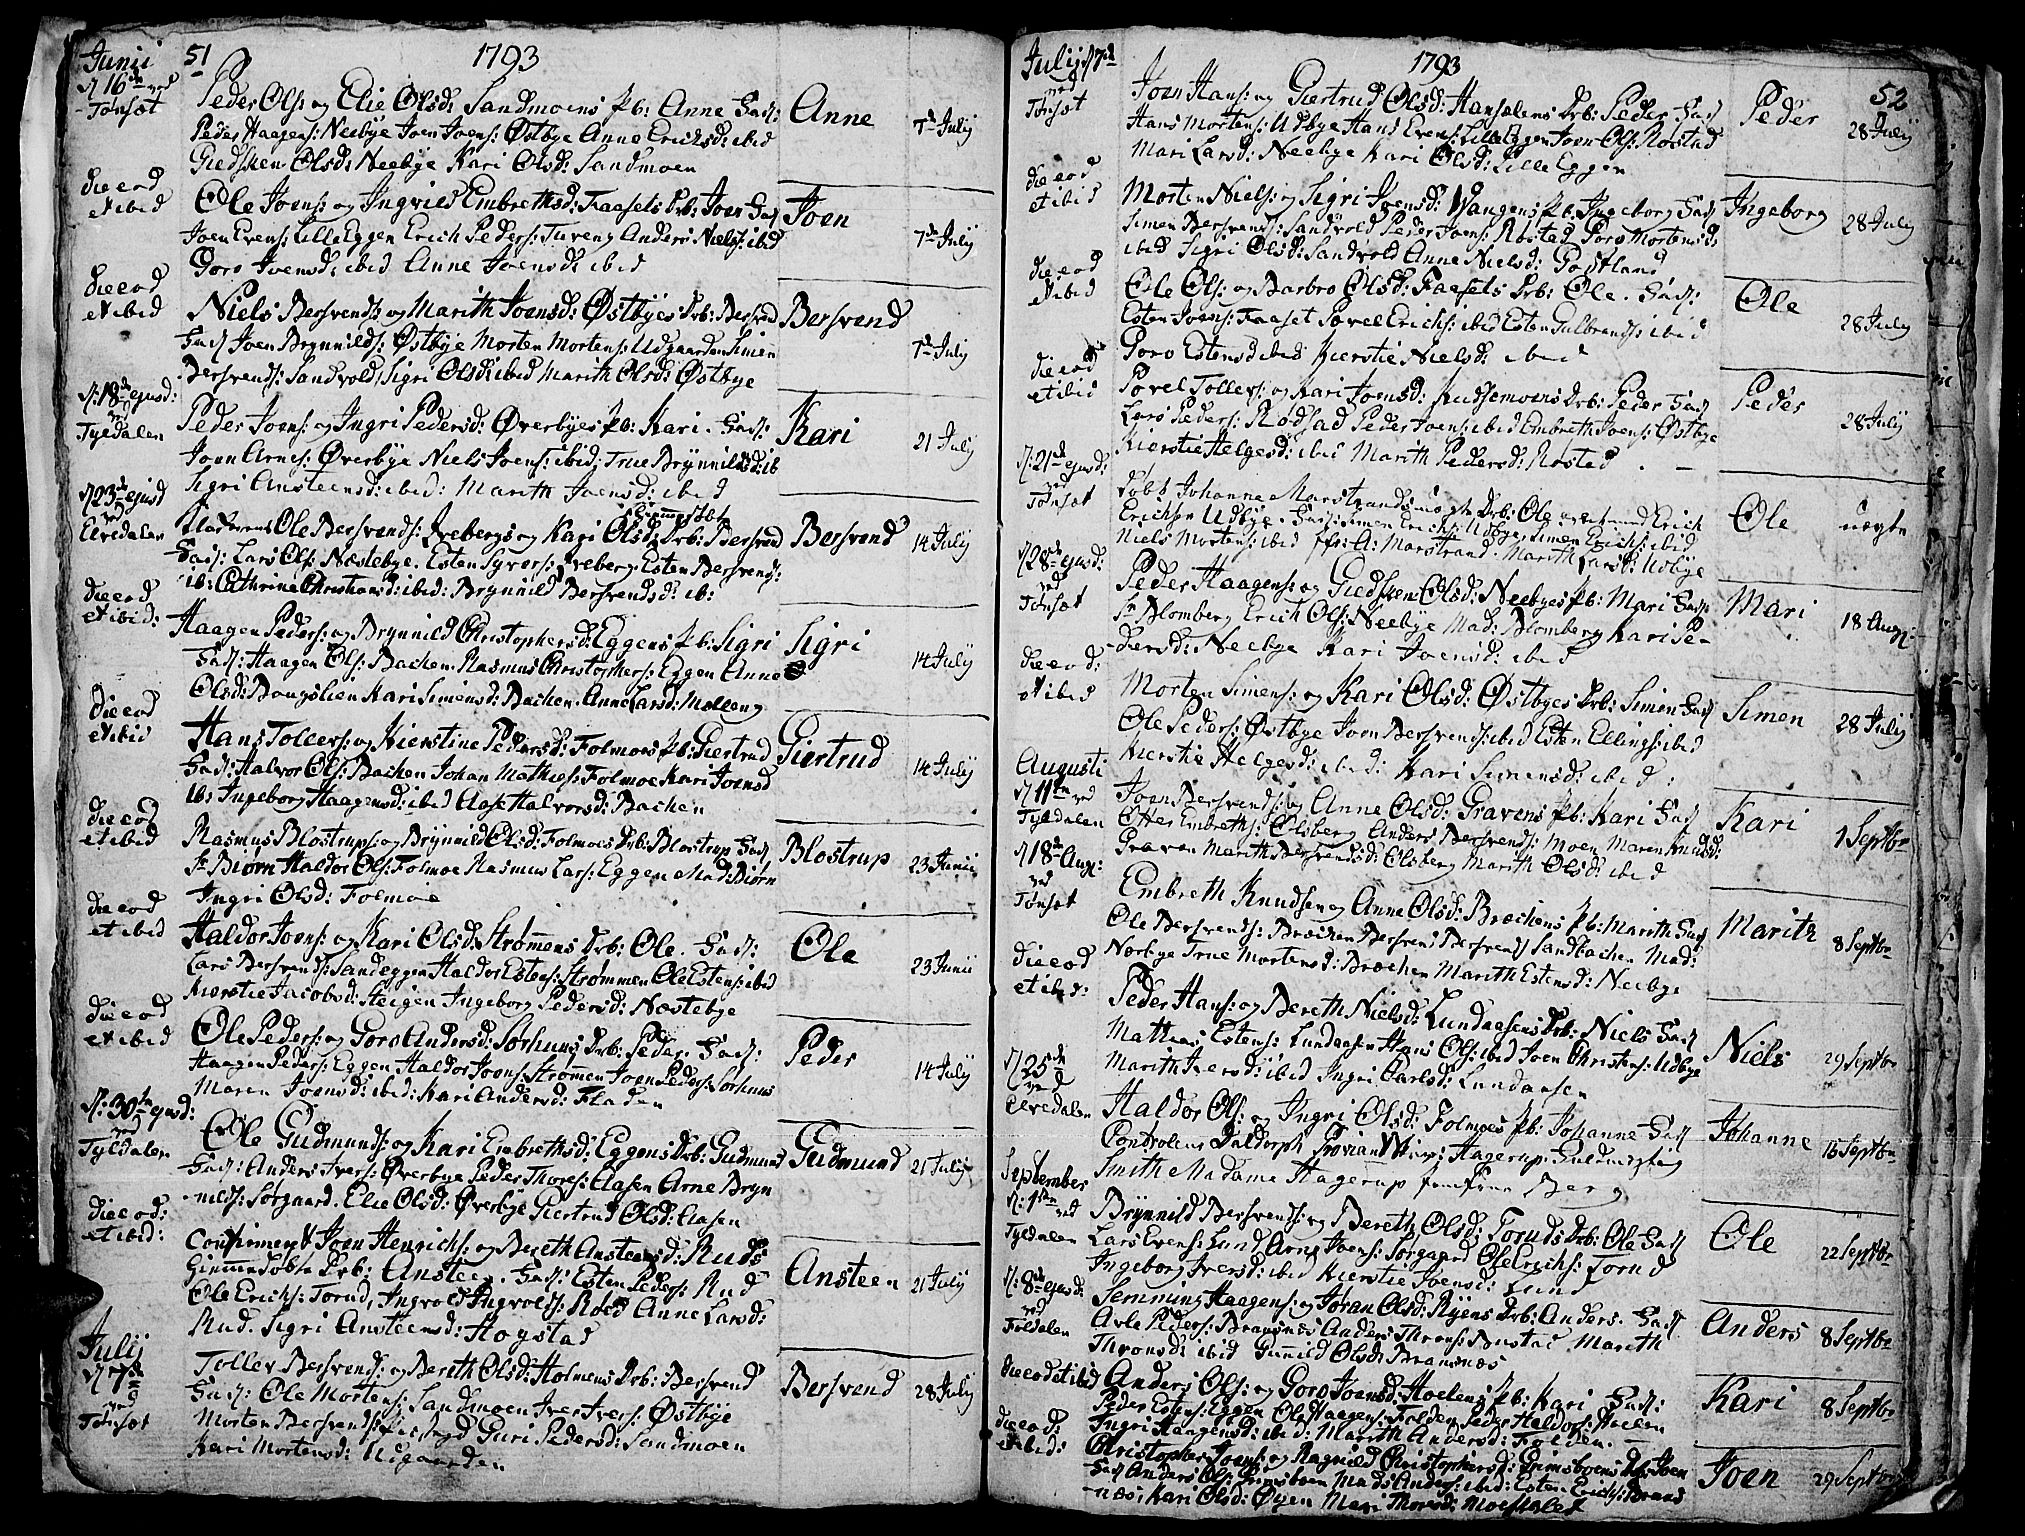 Junii 51 1793
d 16de ved Tønsæt
Peder Ols: og Elie Olsd: Sandmoens Pb: Anne Fad:
Peder Haagens: Neebye Joen Joens: Østbye Anne Erichsd: ibid
Giedsken Olsd: Neebye Kari Olsd: Sandmoen
Anne 7de Julij
die eod et ibid
Ole Joens: og Ingried Embrethsd: Faasets Drb: Joen Fad:
Joen Evens: Lille Eggen Erich Peders: Tureng Anders Niels: ibid
Goro Joensd: ibid Anne Joensd: ibid
Joen 7de Julij
die eod et ibid
Niels Bersvends: og Marith Joensd: Østbyes Drb: Bersvend
Fad: Joen Brynnilds: Østbye Morten Mortens: Udgaarden Simen
Bersvends: Sandvold, Sigri Olsd: ibid Marith Olsd: Østbye
Bersvend 7de Julij
d: 18de ejusd: ved Tyldalen
Peder Joens: og Ingri Pedersd: Øverbyes Pb: Kari. Fad:
Joen Arnes: Øverbye Niels Joens: ibid: True Brynnildsd: ib
Sigri Ansteensd: ibid: Marith Joensd: ibid
Kari 21 Julij
d 23de ejusd ved Elvedalen
Ole Bersvends: og Kari Olsd: Drb: Bersvend
Fad: Lars Ols: Næstebye. Esten Syvers: Esten Bersvends:
ib: Cathrine Christiansd: ibid: Brynnild Bersvendsd: ib:
Bersvend 14 Julij
die eod et ibid:
Haagen Peders: og Brynnild Christophersd: Eggens Pb: Sigri
Fad: Haagen Ols: Bachen. Rasmus Christophers: Eggen Anne
Olsd: Kari Simensd: Bachen. Anne Larsd:
Sigri 14 Julij
die eod et ibid
Hans Tollers: og Kierstine Pedersd: Folmoes Pb: Giertrud
Fad: Halvor Ols: Bachen Johan Mathies: Folmoe Kari Joensd
ib: Ingeborg Haagensd: ibid Aase Halvorsd: Bachen
Giertrud 14 Julij
die eod et ibid
Rasmus Blostrups: og Brynnild Olsd: Folmoes Drb: Blostrup Fad:
Sr Biørn Haldor Ols: Folmoe Rasmus Lars: Eggen Mad: Biørn
Ingri Olsd: Folmoe
Blostrup 23 Junii
die eod et ibid
Haldor Joens: og Kari Olsd: Strømmens Drb: Ole. Fad:
Lars Bersvends: Sandeggen Haldor Estens: Strømmen Ole Estens: ibid
Kierstie Jacobsd: Steigen Ingeborg Pedersd: Næstebye
Ole 23 Junii
die eod et ibid
Ole Peders: og Goro Andersd: Sorhuus Drb: Peder. Fad:
Haagen Peders: Eggen Haldor Joens: Strømmen Joen Peders: Sorhuus
Maren Joensd: ibid: Kari Andersd: Fladen
Peder 14 Julij
d: 30te ejusd: ved Tyldalen
Ole Gudmunds: og Kari Embrethsd: Eggens Drb: Gudmund
Fad: Anders Ivers: Øverbye Peder Thores: Aasen Arne Bryn
nilds: Sørgaard. Elie Olsd: Øverbye Giertrud Olsd: Aasen
Gudmund 21 Julij
die eod: et ibid:
Joen Henrichs: og Bereth Ansteensd: Ruds
Drb: Ansteen. Fad: Esten Peders: Rud
Ole Erichs: Torud, Ingvold Ingvolds: Anne Larsd:
Rud. Sigri Ansteensd: Hogstad
Ansteen 21 Julij
Julij
d 7de ved Tønsæt
Toller Bersvends: og Bereth Olsd: Holmens Drb: Bersvend
Fad: Ole Mortens: Sandmoen Iver Ivers: Østbye
Morten Bersvends: Guri Pedersd: Sandmoen
Kari Mortensd: Udgaarden
Bersvend 28 Julij
Julij d 7de ved Tønsæt 1793 52
Joen Hans: og Giertrud Olsd: Drb: Peder Fad:
Hans Mortens: Udbye Hans Evens: Lille Eggen Joen Ols: Rostad
Mari Larsd: Neebye Kari Olsd: Lille Eggen
Peder 28 Julij
die eod et ibid
Morten Niels: og Sigri Joensd: Vangens Pb: Ingeborg Fad:
Simen Bersvends: Sandvold Peder Joens: Rostad Goro Mortensd:
ibid Sigri Olsd: Sandvold Anne Nielsd:
Ingeborg 28 Julij
die eod et ibid
Ole Ols: og Barbro Olsd: Faasets Drb: Ole. Fad:
Esten Joens: Faaset Povel Erichs: ibid Esten Gulbrands: ibid
Goro Estensd ibid Kierstie Nielsd: ibid
Ole 28 Julij
die eod et ibid
Povel Tollers: og Kari Joensd: Drb: Peder Fad:
Lars Peders: Peder Joens: ibid Embreth Joens: Østbye
Kierstie Helgesd: ibid Marith Pedersd: Rostad
Peder 28 Julij
d: 21de ejusd: ved Tønsæt
Johanne Marstrands uægte Drb: Ole Erich
Erichsen Udbye. Fad: Simen Erichs: Udbye, Simen Erichs: ibid
Niels Mortens: ibid A: Marstrand. Marith Larsd: Udbye
Ole uægte
d 28de ejusd: ved Tønsæt
Peder Haagens: og Giedsken Olsd: Neebyes Pb: Mari Fad:
Sr Blomberg Erich Ols: Neebye Mad: Blomberg Kari Pe-
dersd: Neebye Kari Joensd: ibid
Mari 18 Aug:
die eod: et ibid
Morten Simens: og Kari Olsd: Østbyes Drb: Simen Fad:
Ole Peders: Østbye Joen Bersvends: ibid Esten Ellings: ibid
Kierstie Helgesd: ibid: Kari Simensd: ibid:
Simen 28 Julij
Augusti
d 11te ved Tyldalen
Joen Bersvends: og Anne Olsd: Gravens Pb: Kari Fad:
Otter Embreths: Olsberg Anders Bersvends: Moen Maren
Graven Marith Bersvendsd: Olsberg Marith Olsd: ibid
Kari 1 Septbr
d 18de Aug: ved Tønsæt
Embreth Knudsen og Anne Olsd: Brechens Pb: Marith Fad:
Ole Bersvends: Brechen Bersvend Bersvends Sandbachen Mad:
Norbye True Mortensd: Brechen Marith Estensd: Neebye
Marith 8 Septbr
die eod et ibid:
Peder Hans: og Bereth Nielsd: Lundaasens Drb: Niels Fad:
Mathias Estens: Lundaasen Hans Ols: ibid Joen Christens: Udbye
Marith Iversd: ibid Ingri Carlsd: Lundaasen
Niels 29 Septbr
d 25de ved Elvedalen
Haldor Ols: og Ingri Olsd: Folmoes Pb: Johanne Fad:
Controleur Proviant Hagerup
Smith Madame Hagerup Jomfrue Berg
Johanne 15 Septbr
September
d: 1ste ved Tyldalen
Brynnild Bersvends: og Bereth Olsd: Toruds Drb: Ole Fad:
Lars Evens: Lund Arne Joens: Sørgaard Ole Erichs: Torud
Ingeborg Iversd: ibid Kierstie Joensd: Lund
Ole 22 Septbr
d: 8de ejusd: ved Foldalen
Semming Haagens: og Jøran Olsd: Ryens Drb: Anders. Fad:
Arle Peders: Bransnæs Anders Throns: Bustad Marith
Thronsd: ibid Gunnild Olsd: Bransnæs
Anders 8 Septbr
die eod et ibid
Anders Ols: og Goro Joensd: Pb: Kari Fad:
Peder Estens: Eggen Ole Haagens: Folden Peder Haldors:
Ingri Haagensd: ibid: Marith Andersd: Folden.
Kari 8 Septbr
die eod: et ibid:
Christopher Joens: og Ragnild Christophersd: Drb: Joen
Fad: Anders Ols: Mads Anders: ibid: Esten Erichs: Brans
næs: Kari Olsd: Øyen Mari Thoresd:
Joen 29 Septbr